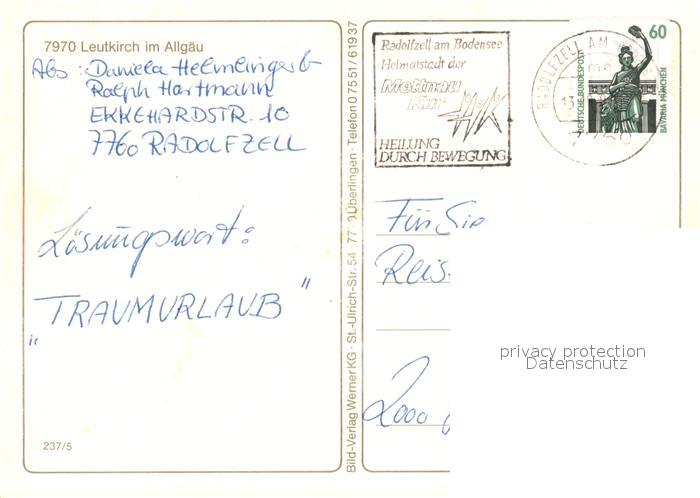 7970 Leutkirch im Allgäu
Abs.: Daniela Helmlinger &
Ralph Hartmann
EKKEHARDSTR. 10
7760 RADOLFZELL
Lösungswort:
„TRAUMURLAUB"
237/5
Bild-Verlag Werner KG · St.-Ulrich-Str. 54 · 77 0 Überlingen · Telefon 07551/61937
Radolfzell am Bodensee
Heimatstadt der
Mettnau
Kur
HEILUNG
DURCH BEWEGUNG
RADOLFZELL AM
13
7760
60
DEUTSCHE BUNDESPOST
BAVARIA MÜNCHEN
Für Sie
Reis
2000
privacy protection
Datenschutz